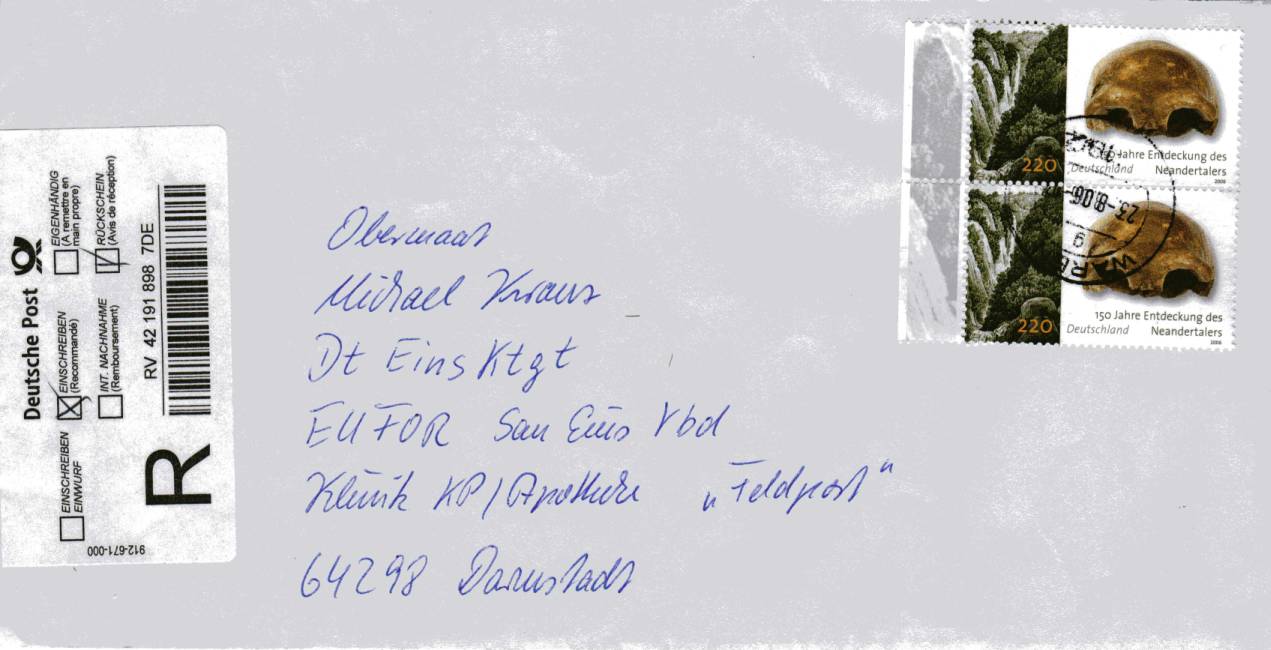 Deutsche Post
EINSCHREIBEN
EINWURF
EINSCHREIBEN
(Recommandé)
INT. NACHNAHME
(Remboursement)
EIGENHÄNDIG
(A remettre en
main propre)
RÜCKSCHEIN
(Avis de réception)
R
RV 42 191 898 7DE
912-671-000
220
Deutschland
Jahre Entdeckung des
Neandertalers
2006
23.-8.06
220
Deutschland
150 Jahre Entdeckung des
Neandertalers
2006
Obermaat
Michael Kraus
Dt Eins Ktgt
EUFOR San Eins Vbd
Klinik KP/Apotheke „Feldpost“
64298 Darmstadt